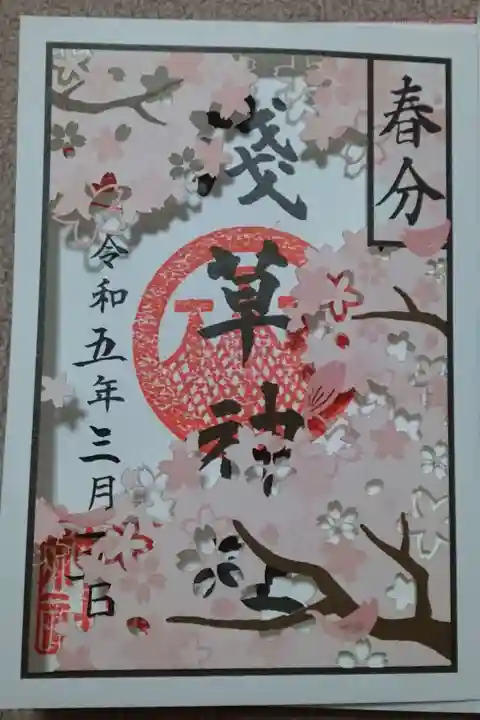 春分
淺草神社
令和五年三月二日